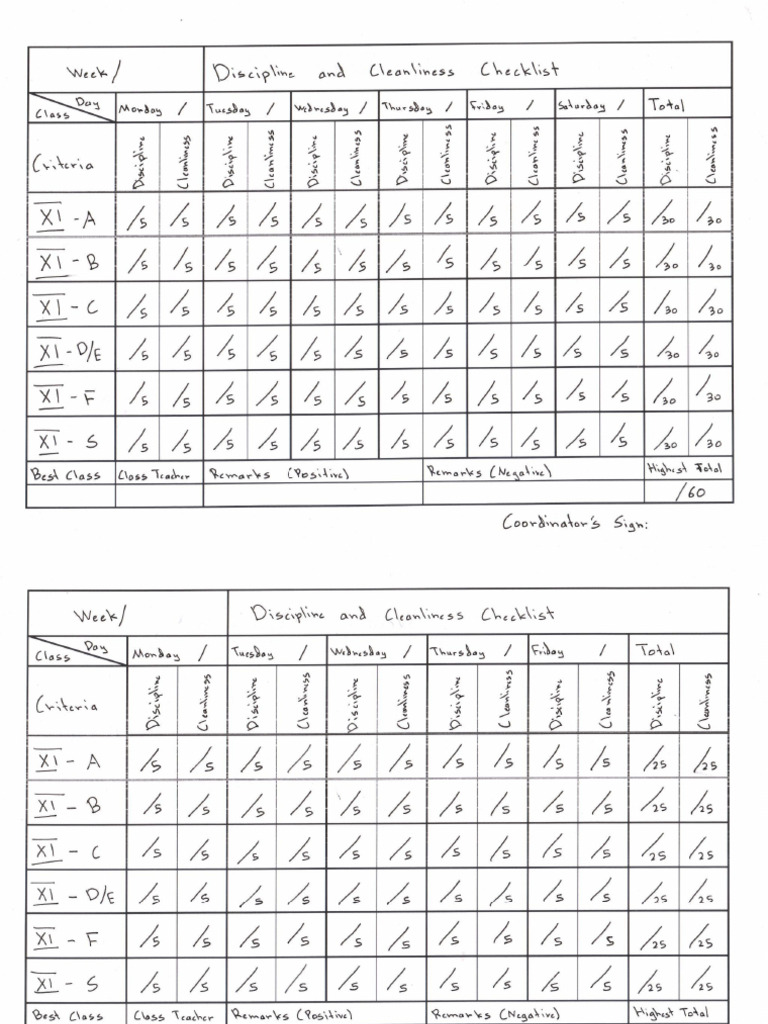 Week/ Discipline and Cleanliness Checklist
Day
Class Monday / Tuesday / Wednesday / Thursday / Friday / Saturday / Total
Criteria Discipline Cleanliness Discipline Cleanliness Discipline Cleanliness Discipline Cleanliness Discipline Cleanliness Discipline Cleanliness Discipline Cleanliness
XI - A /5 /5 /5 /5 /5 /5 /5 /5 /5 /5 /5 /5 /30 /30
XI - B /5 /5 /5 /5 /5 /5 /5 /5 /5 /5 /5 /5 /30 /30
XI - C /5 /5 /5 /5 /5 /5 /5 /5 /5 /5 /5 /5 /30 /30
XI - D/E /5 /5 /5 /5 /5 /5 /5 /5 /5 /5 /5 /5 /30 /30
XI - F /5 /5 /5 /5 /5 /5 /5 /5 /5 /5 /5 /5 /30 /30
XI - S /5 /5 /5 /5 /5 /5 /5 /5 /5 /5 /5 /5 /30 /30
Best Class Class Teacher Remarks (Positive) Remarks (Negative) Highest Total
/60
Coordinator's Sign:
Week/ Discipline and Cleanliness Checklist
Day
Class Monday / Tuesday / Wednesday / Thursday / Friday / Total
Criteria Discipline Cleanliness Discipline Cleanliness Discipline Cleanliness Discipline Cleanliness Discipline Cleanliness Discipline Cleanliness
XI - A /5 /5 /5 /5 /5 /5 /5 /5 /5 /5 /25 /25
XI - B /5 /5 /5 /5 /5 /5 /5 /5 /5 /5 /25 /25
XI - C /5 /5 /5 /5 /5 /5 /5 /5 /5 /5 /25 /25
XI - D/E /5 /5 /5 /5 /5 /5 /5 /5 /5 /5 /25 /25
XI - F /5 /5 /5 /5 /5 /5 /5 /5 /5 /5 /25 /25
XI - S /5 /5 /5 /5 /5 /5 /5 /5 /5 /5 /25 /25
Best Class Class Teacher Remarks (Positive) Remarks (Negative) Highest Total